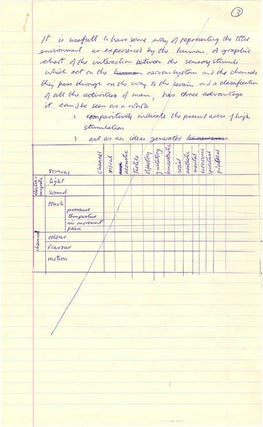 3
It is usefull to have some way of representing the total
environment as experienced by the human. A graphic
chart of the interaction between the sensory stimuli
which act on the nervous system and the channels
they pass through on the way to the brain and a classification
of all the activities of man, has three advantages
it can be seen as a whole
2 comparitively indicate the present area of high
stimulation
3 act as an ideas generator
channel
visual
tactile
olfactory
gustatory
social
STIMULI
light
sound
touch
pressure
temperature
air movement
pain
odour
flavour
motion